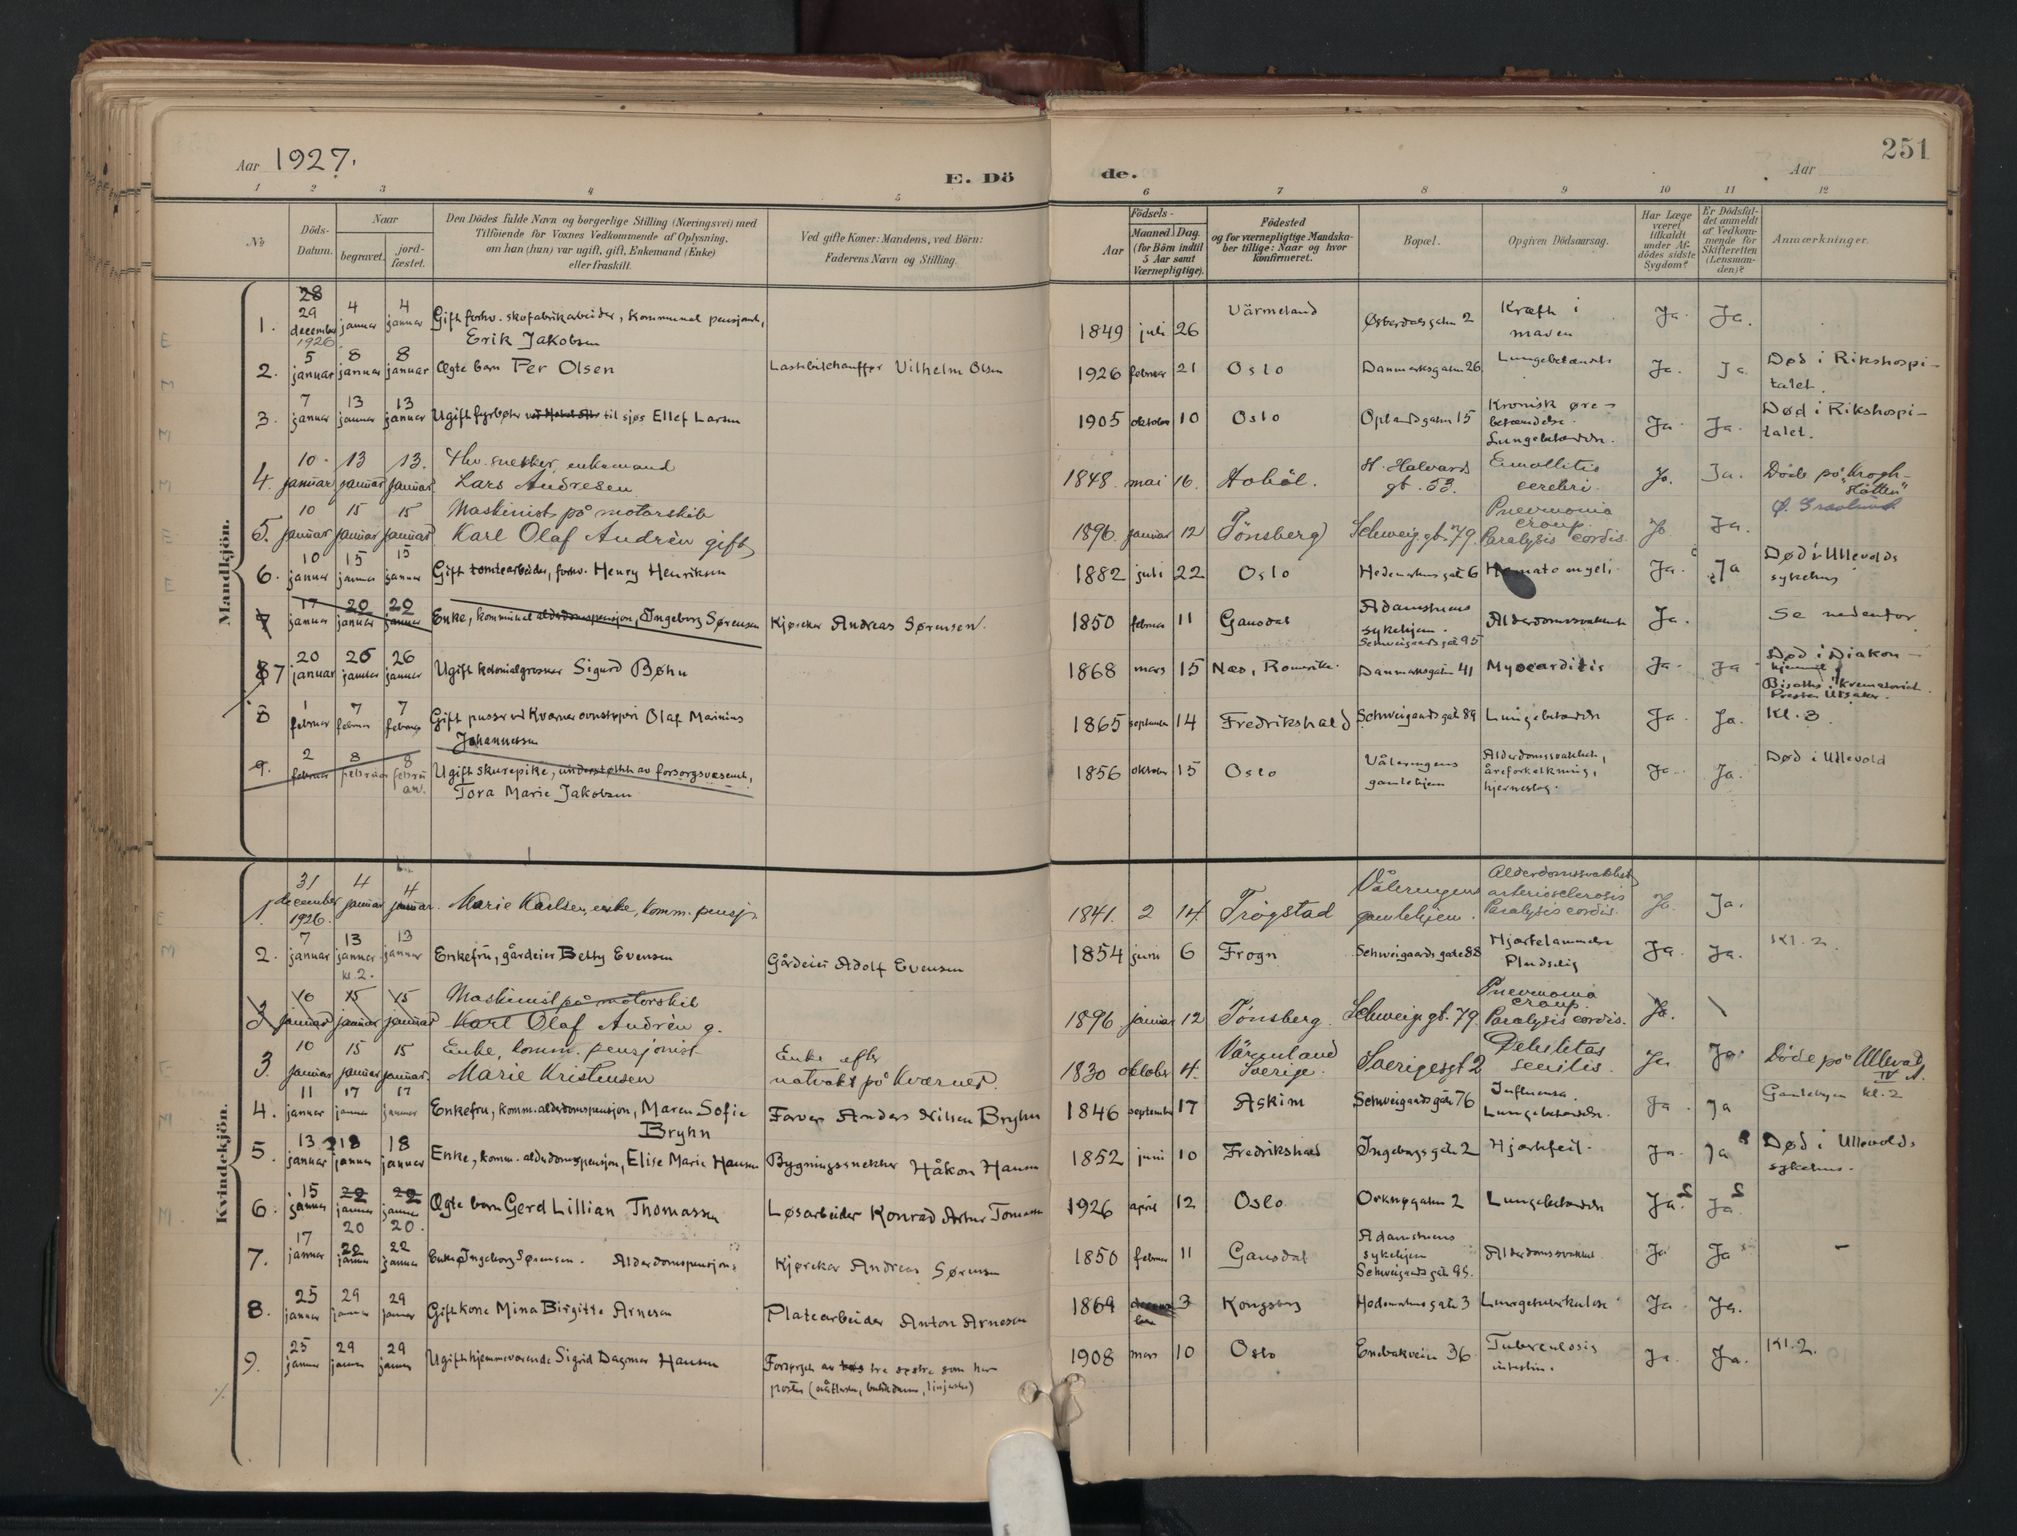 Aar 1927.
E. Dö
de.
Aar
251
1 2 3 4 5 6 7 8 9 10 11 12
No
Döds-Datum.
Naar
begravet.
jord-fæstet.
Den Dödes fulde Navn og borgerlige Stilling (Næringsvei) med
Tilföiende for Voxnes Vedkommende af Oplysning,
om han (hun) var ugift, gift, Enkemand (Enke)
eller fraskilt.
Ved gifte Koner: Mandens, ved Börn:
Faderens Navn og Stilling.
Födsels-
Aar
Maaned. Dag.
(for Börn indtil
5 Aar samt
Værnepligtige).
Födested
og for værnepligtige Mandska-
ber tillige: Naar og hvor
konfirmeret.
Bopæl.
Opgiven Dödsaarsag.
Har Læge
været
tilkaldt
under Af-
dödes sidste
Sygdom?
Er Dödsfal-
det anmeldt
af Vedkom-
mende for
Skifteretten
(Lensman-
den)?
Anmærkninger.
Mandkjön.
1. 28 29 december 1926 4 januar 4 januar Gift forhv. skofabrikarbeider, kommunal pensjonist,
Erik Jakobsen 1849 juli 26 Värmeland Østerdalsgaten 2 Kræft i
maven Ja. Ja.
2. 5 januar 8 januar 8 januar Ægte barn Per Olsen Lastebilchauffør Vilhelm Olsen 1926 februar 21 Oslo Danmarksgaten 26 Lungebetændelse Ja. Ja Død i Rikshospi-
talet.
3. 7 januar 13 januar 13 januar Ugift fyrbøter til sjøs Ellef Larsen 1905 oktober 10 Oslo Oplandsgaten 15 Kronisk øre-
betændelse.
Lungebetændelse. Ja. Ja. Død i Rikshospi-
talet.
4. 10. januar 13 januar 13. januar Fhv. snekker, enkemand
Lars Andresen 1848. mai 16. Hobøl. St. Halvards
gt. 53. Emollitio
cerebri. Ja. Ja. Döde på "Krogh-
støtten"
5. 10 januar 15 januar 15 januar Maskinist på motorskib
Karl Olaf Andrèn gift 1896. januar 12 Tønsberg Schweig. gt. 79. Pneumonia
croup.
Paralysis cordis. Ja. Ja.
6. 10 januar 15 januar 15 januar Gift tomtearbeider, forhv. Henry Henriksen 1882 juli 22 Oslo Hedemarkens gate 6 Hemato myeli. Ja. Ja Død i Ullevolds
sykehus
7 17 januar 20 januar 20 januar Enke, kommunal alderdomspensjon, Ingeborg Sørensen Kjører Andreas Sørensen. 1850 februar 11 Gausdal Adamstuens
sykehjem.
Schweigaards gate 95 Alderdomssvakhet Ja. Se nedenfor
8 7 20 januar 26 januar 26 januar Ugift kolonialgrosserer Sigurd Bøhn 1868 mars 15 Nes, Romerike. Danmarksgaten 41 Myocarditis Ja. Ja Død i Diakon-
hjemmet
Bisattes i Krematoriet.
Presten Utsaker.
8 1 februar 7 februar 7 februar Gift pusser ved Kværner ovnstøperi Olaf Mainius
Johannessen 1865 september 14 Fredrikshald Schweigaards gate 89 Lungebetændelse Ja. Ja. Kl. 3.
9. 2 februar 8 februar 8 februar. Ugift skurepike, understøttet av forsorgsvæsenet,
Tora Marie Jakobsen 1856 oktober 15 Oslo Vålerengens
gamlehjem Alderdomssvakhet,
åreforkalkning,
hjerneslag. Ja. Ja. Død i Ullevold
Kvindekjön.
1. 31 december 1926. 4 januar 4 januar. Marie Karlsen, enke, komm. pensj. 1841. 2 14. Trögstad Vålerengens
gamlehjem. Alderdomssvakhet
arteriosclerosis
Paralysis cordis. Ja. Ja.
2. 7 januar 13 januar kl. 2. 13 januar Enkefru, gårdeier Betty Evensen Gårdeier Adolf Evensen 1854 juni 6 Frogn Schweigaards gate 88 Hjertelammelse
Pludselig Ja. Ja. Kl. 2.
3 10 januar 15 januar 15 januar Maskinist på motorskib
Karl Olaf Andrèn g. 1896 januar 12 Tønsberg. Schweig. gt. 79. Pneumonia
croup.
Paralysis cordis. Ja.
3. 10 januar 15 januar 15 januar. Enke, komm. pensjonist
Marie Kristensen Enke efter
natvakt på Kværner. 1830 oktober 4. Värmland
Sverige. Sverigesgt 2 Debilitas
senilis. Ja Ja Döde på Ullevål
IV A.
4. 11 januar 17 januar 17 januar Enkefru, komm. alderdomspensjon, Maren Sofie
Bryhn Farver Anders Nilsen Bryhn 1846 september 17 Askim Schweigaards gate 76 Influensa.
Lungebetændelse. Ja. Ja Gamlebyen kl. 2
5. 13 januar 18 januar 18 januar Enke, komm. alderdomspensjon, Elise Marie Hansen Bygningssnekker Håkon Hansen 1852 juni 10 Fredrikshald Ingeborgs gate 2 Hjertefeil. Ja. Ja Død i Ullevolds
sykehus.
6. 15 januar 22 januar 20 22 januar 20. Ægte barn Gerd Lillian Thomassen Løsarbeider Konrad Artur Tomassen 1926 april 12 Oslo Orknøgaten 2 Lungebetændelse Ja. Ja.
7. 17 januar 22 januar 22 januar Enke Ingeborg Sørensen. Alderdomspensjon. Kjører Andreas Sørensen 1850 februar 11 Gausdal Adamstuens
sykehjem
Schweigaards gate 95. Alderdomssvakhet. Ja Ja -
8. 25 januar 29 januar 29 januar Gift kone Mina Birgitte Arnesen Platearbeider Anton Arnesen 1869 3 Kongsberg Hedemarkens gate 3 Lungetuberkulose Ja Ja.
9. 25 januar 29 januar 29 januar Ugift hjemmeværende Sigrid Dagmar Hansen Forsørget av tre søstre som har
poster 1908 mars 10 Oslo Enebakveien 36. Tuberculosis
intestin. Ja. Ja. Kl. 2.